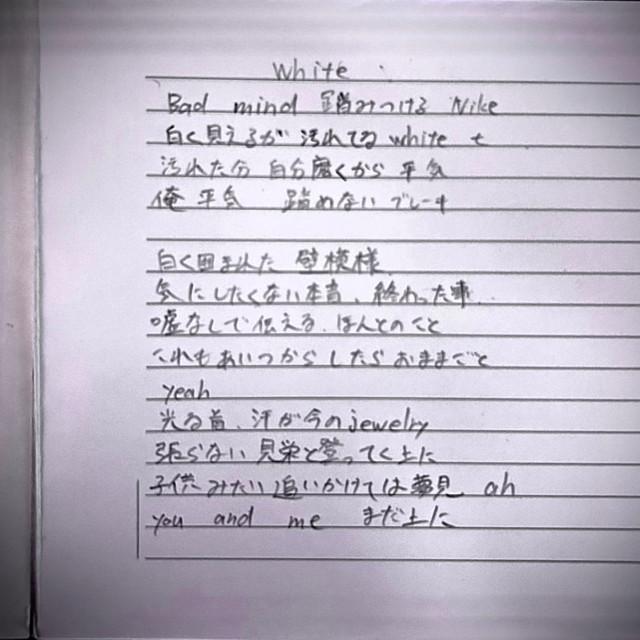 White
Bad mind 踏みつける Nike
白く見えるが汚れてる white t
汚れた分 自分磨くから 平気
俺 平気 踏めない ブレーキ
白く囲まれた 壁模様
気にしたくない本当、終わった事
嘘なしで伝える、ほんとのこと
これもあいつからしたらおままごと
yeah
光る首、汗が今のjewelry
張らない 見栄と登ってく上に
子供みたい追いかけては夢見 ah
you and me まだ上に